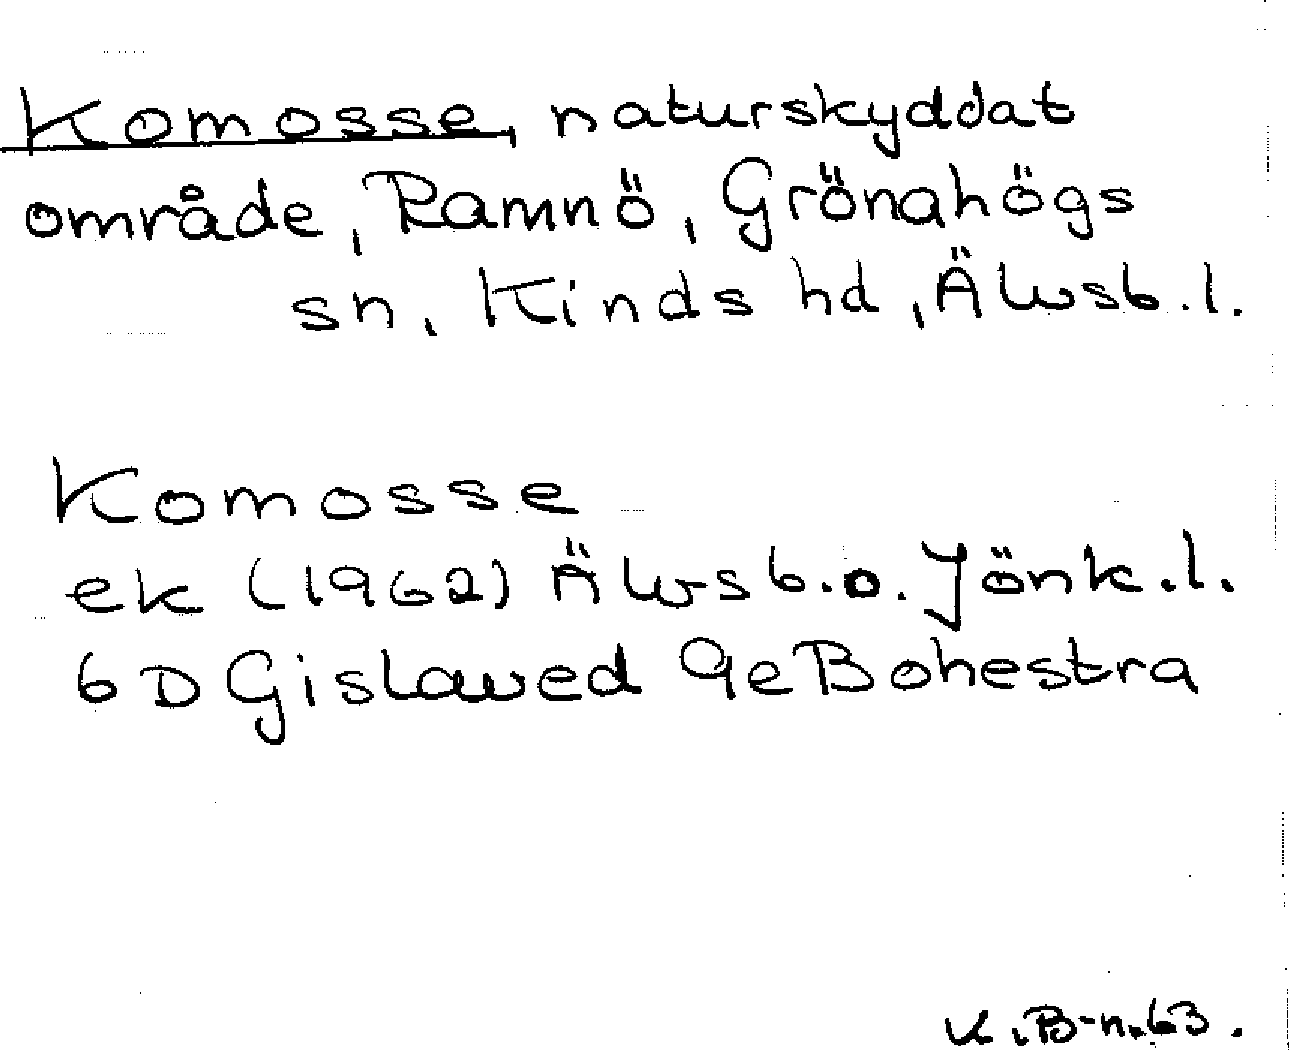 Komosse, naturskyddat
område, Ramnö, Grönahögs
sn, Kinds hd, Älvsb.l.
Komosse
ek (1962) Älvsb.o. Jönk.l.
6D Gislaved 9e Bohestra
K.B-n.63.